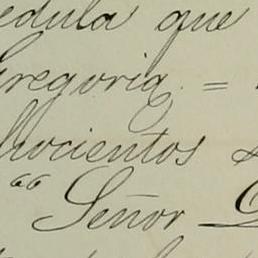 edula que
Gregoria =
hocientos
" Señor